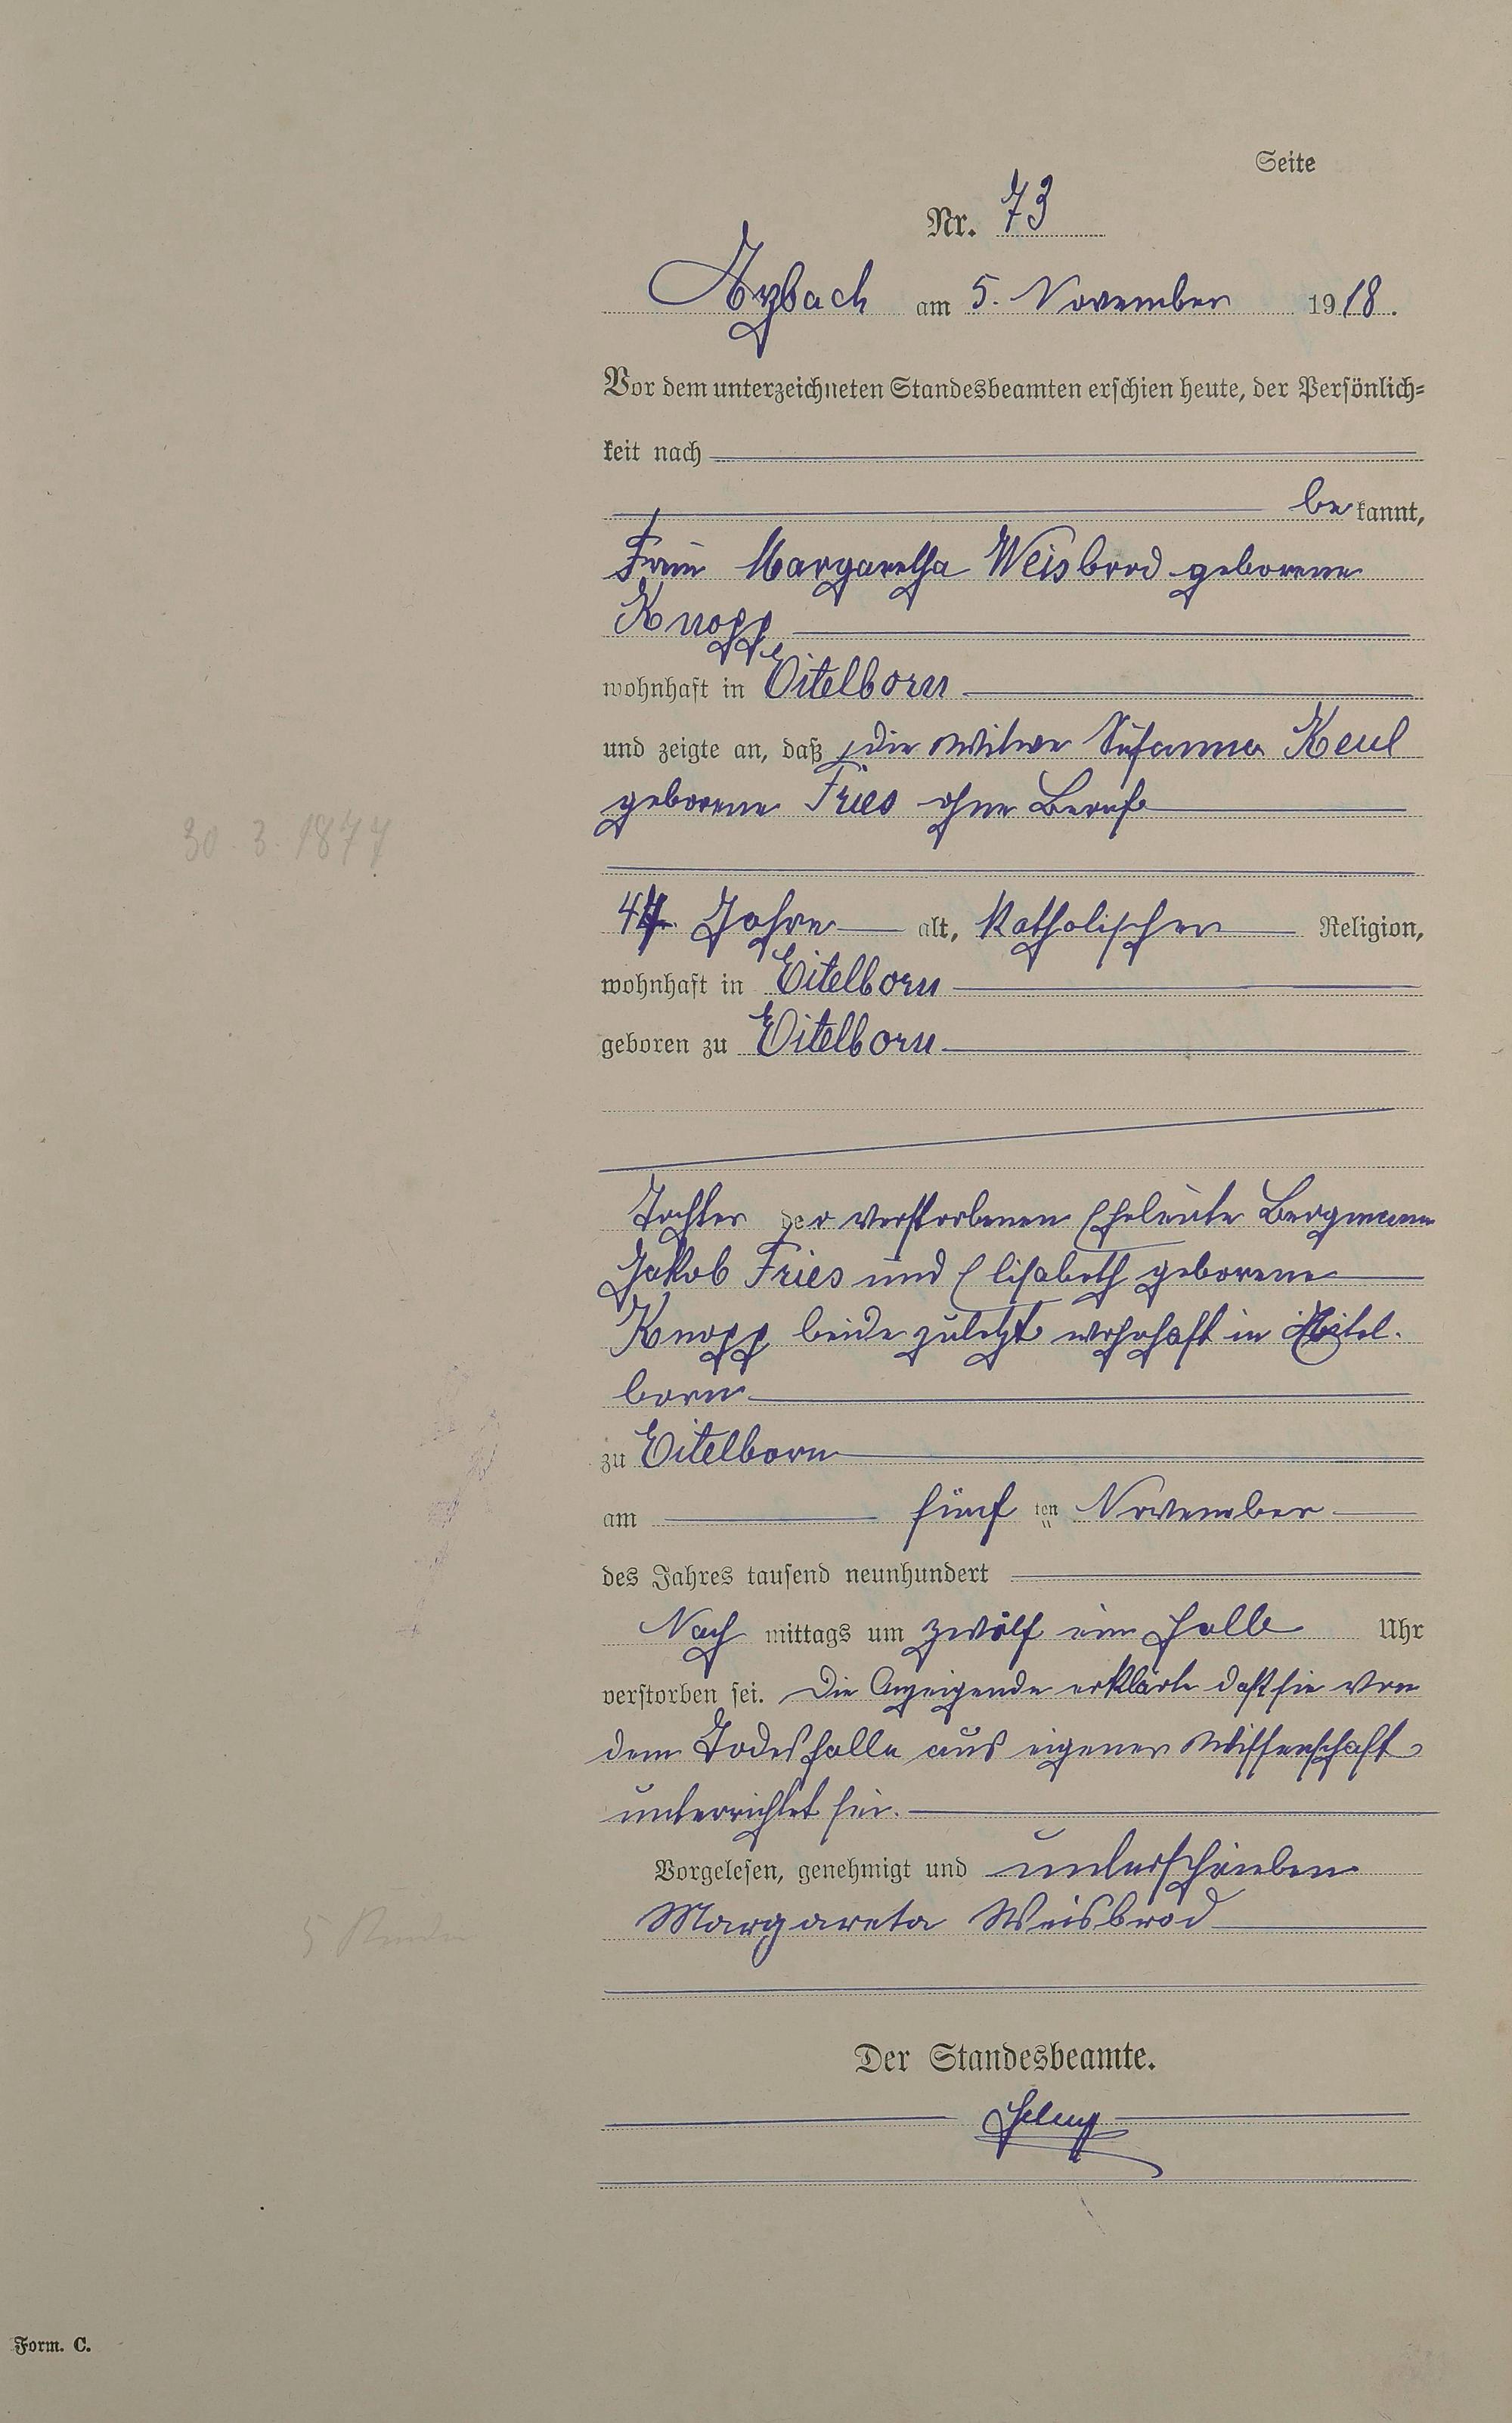 Seite
Nr. 73
Arzbach am 5. November 1918.
Vor dem unterzeichneten Standesbeamten erschien heute, der Persönlich=
keit nach
bekannt,
Frau Margaretha Weisbrod geborene
Knopp
wohnhaft in Eitelborn
und zeigte an, daß die Witwe Susanna Keul
geborene Fries ohne Beruf
30 3. 1877
Jahre alt, katholischer Religion,
wohnhaft in Eitelborn
geboren zu Eitelborn
Tochter der verstorbenen Eheleute Bergmann
Jakob Fries und Elisabeth geborene
Knopp beide zuletzt wohnhaft in Eitel-
born
zu Eitelborn
am fünften November
des Jahres tausend neunhundert
Nachmittags um zwölf ein halb Uhr
verstorben sei. Die Anzeigende erklärte daß sie von
dem Todesfalle aus eigener Wissenschaft
unterrichtet sei.
Vorgelesen, genehmigt und unterschrieben
Margareta Weisbrod
Der Standesbeamte.
Form. C.